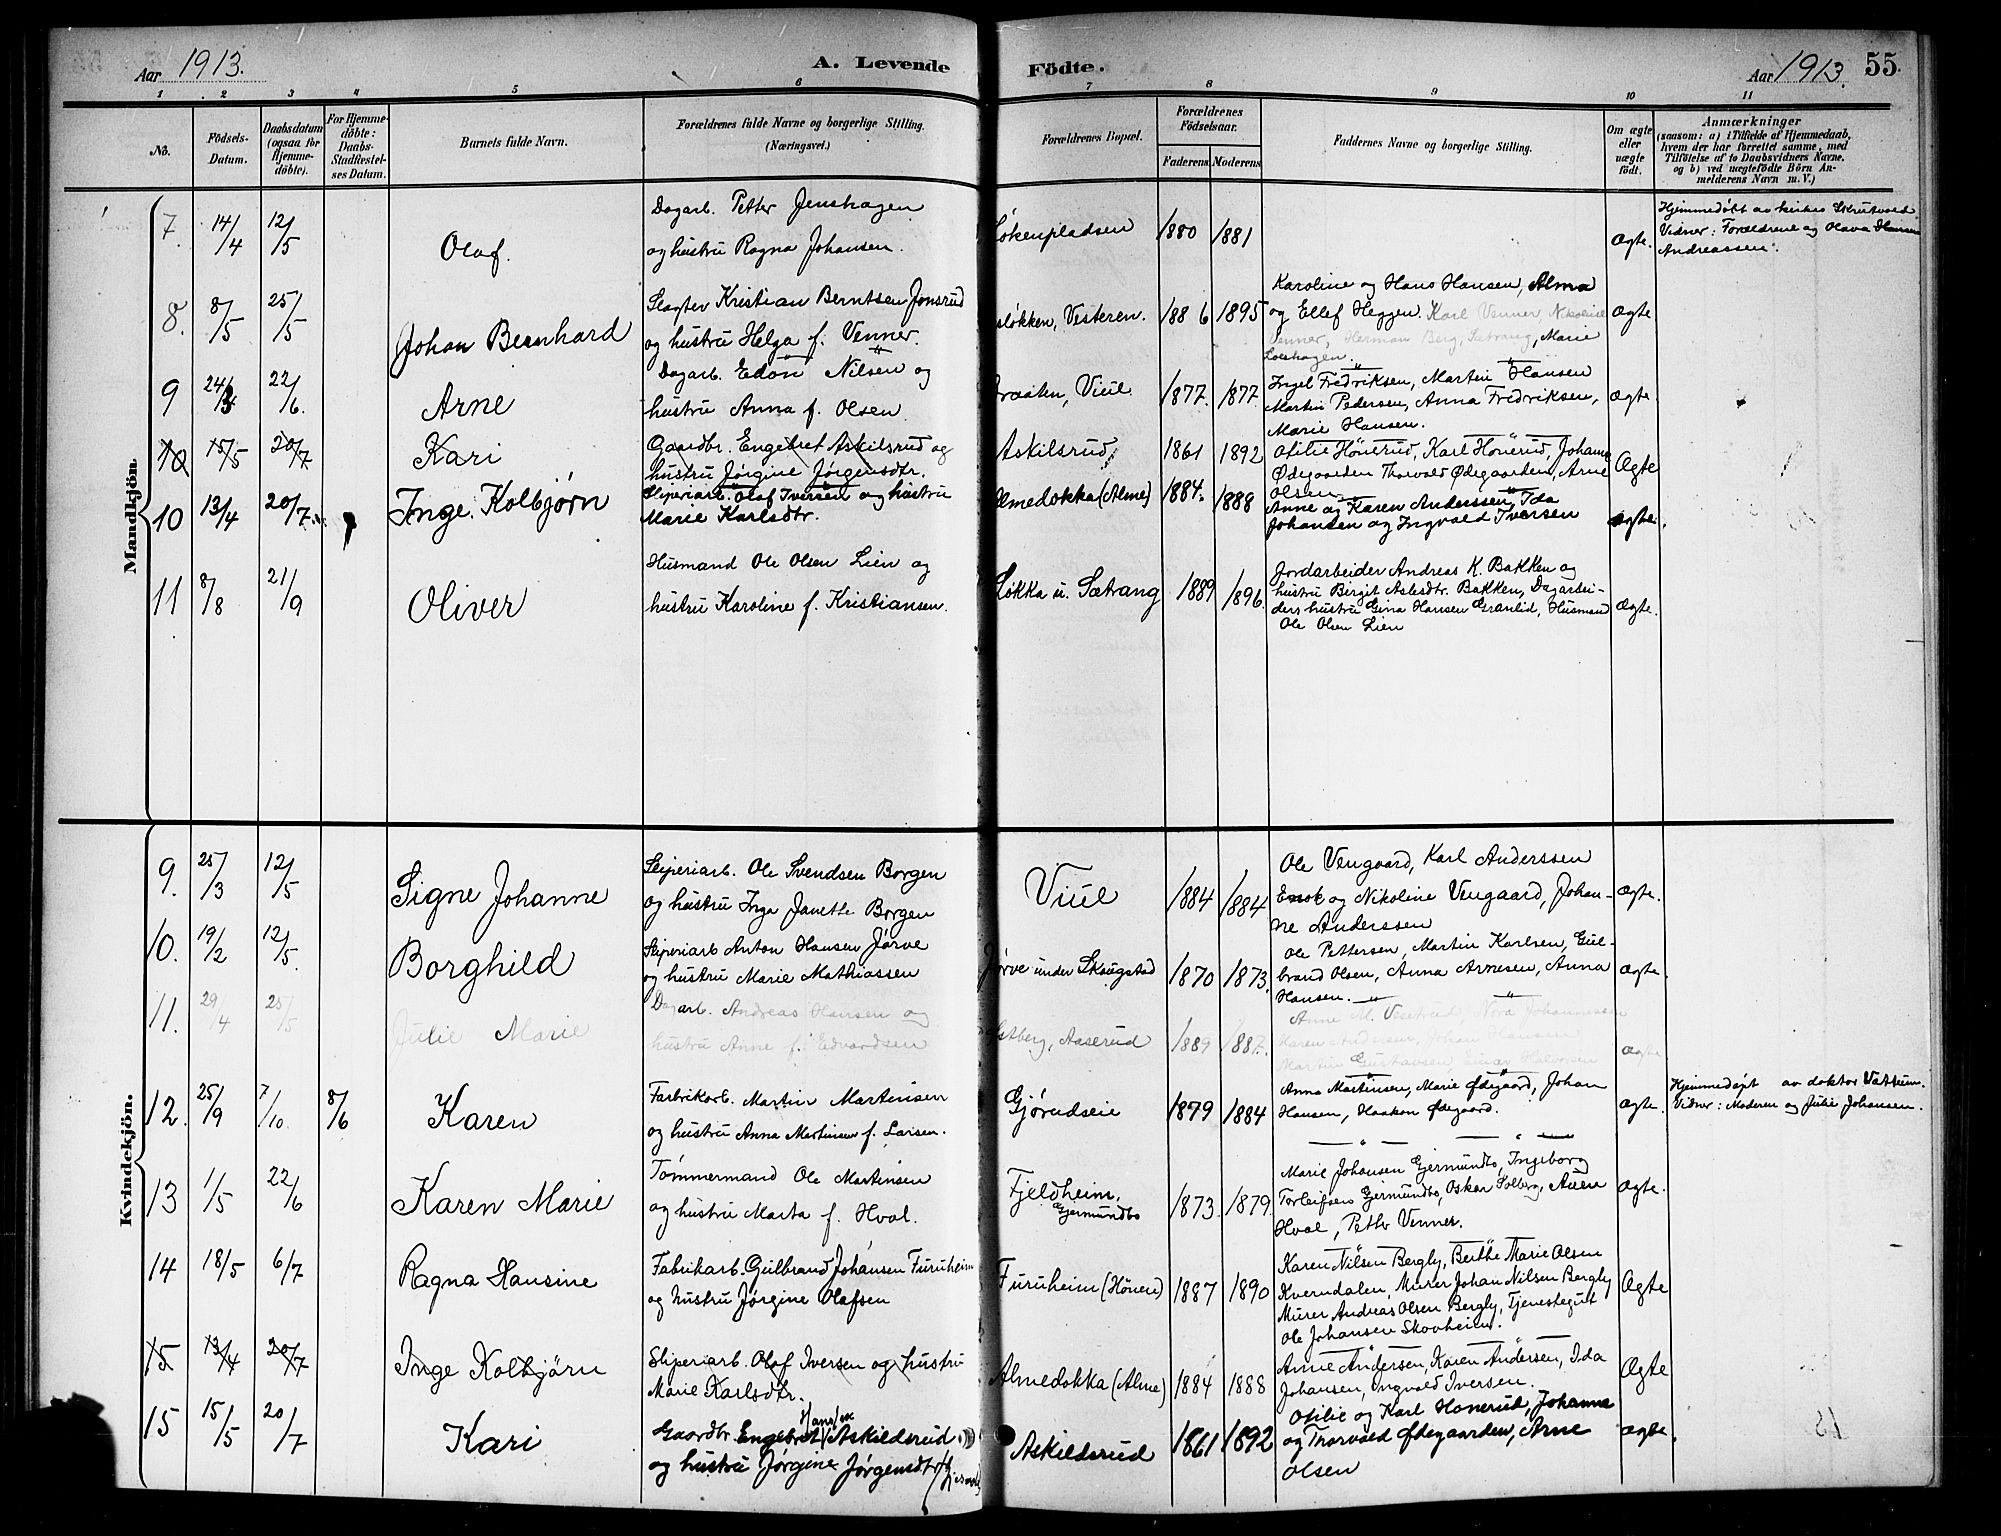 Aar 1913.
A. Levende
Födte.
Aar 1913.
55.
1 2 3 4 5 6 7 8 9 10 11
No.
Födsels-
Datum.
Daabsdatum
(ogsaa for
Hjemme-
döbte).
For Hjemme-
döbte:
Daabs-
Stadfæstel-
ses Datum.
Barnets fulde Navn.
Forældrenes fulde Navne og borgerlige Stilling.
(Næringsvei.)
Forældrenes Bopæl.
Forældrenes
Födselsaar.
Faderens
Moderens
Faddernes Navne og borgerlige Stilling.
Om ægte
eller
uægte
födt.
Anmærkninger
(saasom: a) i Tilfælde af Hjemmedaab,
hvem der har forrettet samme, med
Tilföielse af to Daabsvidners Navne.
og b) ved uægtefödte Börn An-
melderens Navn m. V.)
Mandkjön.
7. 14/4 12/5 Olaf.
Dagarb. Petter Jenshagen
og hustru Ragna Johansen.
Løkenpladsen 1880 1881 Ægte.
Hjemmedøbt av kirkes Skrutvold
Vidner: Forældrene og Olava Hansen
Andreassen.
8. 8/5 25/5 Johan Bernhard
Slagter Kristian Berntsen Jonsrud
og hustru Helga f. Venner.
sløkken, Vesteren. 1886 1895
Karoline og Hans Hansen, Alma
og Ellef Heggen. Karl Venner, Nikoline
Venner, Herman Berg, Sætrang, Marie
Loeshagen.
Ægte
9 24/3 22/6. Arne
Dagarb. Edon Nilsen og
hustru Anna f. Olsen.
Braaten, Viul. 1877. 1877.
Ingel Fredriksen, Martin Hansen
Martin Pedersen, Anna Fredriksen,
Marie Hansen.
Ægte.
10 15/5 20/7 Kari
Gaardbr. Engebret Askilsrud og
hustru Jørgine Jørgensdtr.
Askilsrud 1861 1892
Otilie Hönerud, Karl Hönerud, Johanne
Ødegaarden Thorvald Ødegaarden, Arne
Olsen
Ægte
10 13/4 20/7. Inge. Kolbjørn
Sliperiarb. Olaf Iversen og hustru
Marie Karlsdtr.
Almedokka (Alme) 1884. 1888
Anne og Karen Anderssen, Ida
Johansen og Ingvald Iversen
Ægte.
11 8/8 21/9 Oliver
Husmand Ole Olsen Lien og
hustru Karoline f. Kristiansen.
Løkka u. Sætrang 1889 1896.
Jordarbeider Andreas K. Bakken og
hustru Birgit Aslesdtr. Bakken, Dagarbei-
ders hustru Gina Hansen Granlid, Husmand
Ole Olsen Lien
Ægte.
Kvindekjön.
9. 25/3 12/5 Signe Johanne
Sliperiarb. Ole Svendsen Borgen
og hustru Inga Janette Borgen
Viul 1884 1884
Ole Vengaard, Karl Anderssen
Enok og Nikoline Vengaard, Johan-
ne Anderssen
Ægte.
10. 19/2 12/5. Borghild
Sliperiarb Anton Hansen Jørve
og hustru Marie Mathiassen
Jørve under Skougstad 1870 1873.
Ole Pettersen, Martin Karlsen, Gul-
brand Olsen, Anna Arnesen, Anna
Hansen.
Ægte.
11. 29/4 25/5 Julie Marie
Dagarb. Andreas Hansen og
hustru Anne f. Edvardsen
Astberg, Aaserud 1889 1887.
Anne M. Vesetrud, Nora Johannessen
Karen Andersen, Johan Hansen
Martin Gustavsen Einar Halvorsen
Ægte
12. 25/9 7/10. 8/6 Karen
Fabrikarb. Martin Martinsen
og hustru Anna Martinsen f. Larsen.
Gjørudseie 1879 1884
Anna Martinsen, Marie Ødegaard, Johan
Hansen, Haakon Ødegaard.
Ægte.
Hjemmedøpt av doktor Vattum.
Vidner: Moderen og Julie Johansen.
13 1/5 22/6 Karen Marie
Tømmermand Ole Martinsen
og hustru Marta f. Hval.
Fjeldheim,
Gjermundbo 1873. 1879
Marie Johansen Gjermundbo, Ingeborg
Torleifsen Gjermundbo, Oskar Solberg, Auen
Hval, Petter Venner.
Ægte.
14 18/5 6/7 Ragna Hansine
Fabrikarb. Gulbrand Johansen Furuheim
og hustru Jørgine Olafsen
Furuheim (Hönen) 1887 1890
Karen Nilsen Bergly, Berthe Marie Olsen
Kverndalen, Murer Johan Nilsen Bergly
Murer Andreas Olsen Bergly, Tjenestegut
Ole Johansen Skovheim.
Ægte
15 13/4 20/7 Inge Kolbjörn
Sliperiarb. Olaf Iversen og hustru
Marie Karlsdtr.
Almedokka (Alme) 1884 1888
Anne Andersen, Karen Andersen, Ida
Johansen, Ingvald Iversen.
Ægte
15 15/5 20/7 Kari
Gaardbr. Engebret Hansen Askildsrud
og hustru Jørgine Jørgensdtr
Askildsrud 1861 1892
Otilie og Karl Honerud, Johanne
og Thorvald Ødegaarden, Arne
Olsen
Ægte.